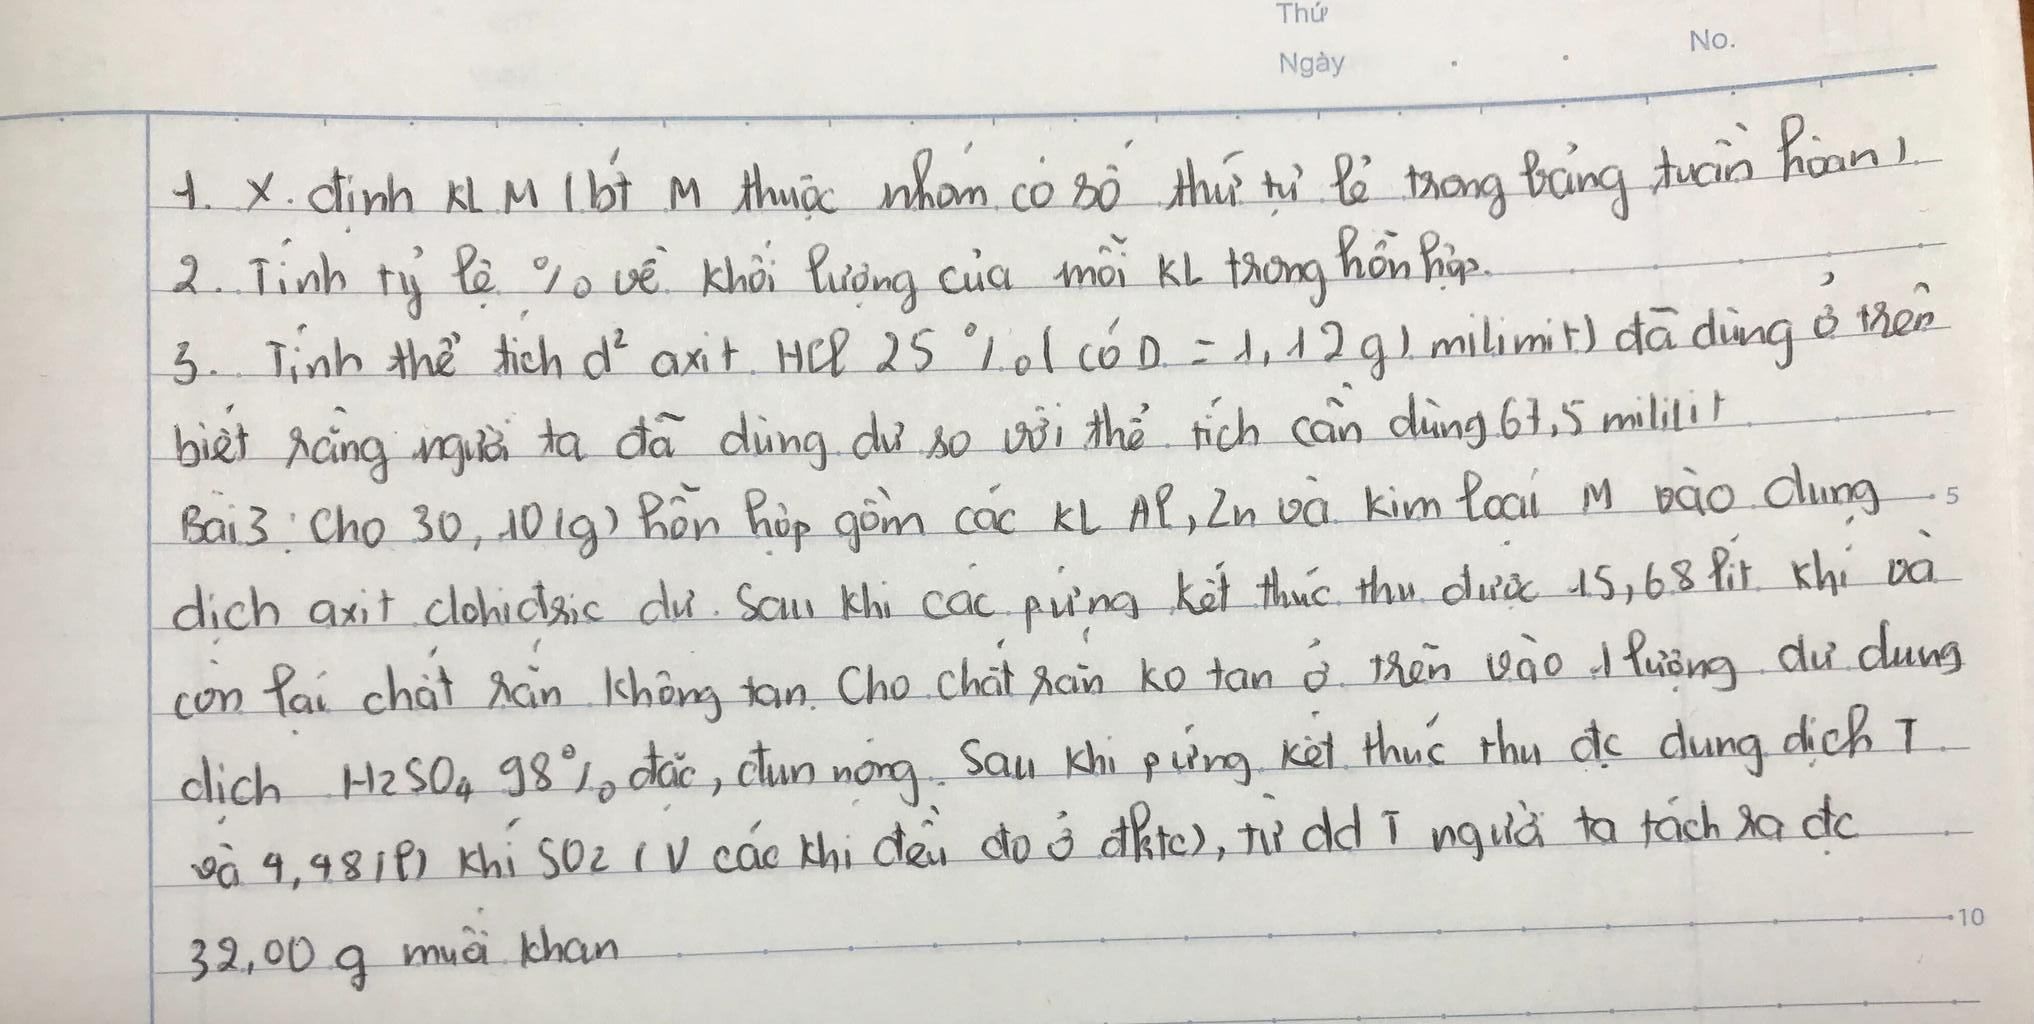 Thứ
Ngày
No.
1. X. định KL M (bt M thuộc nhóm có số thứ tự lẻ trong bảng tuần hoàn).
2. Tính tỷ lệ % về khối lượng của mỗi KL trong hỗn hợp.
3. Tính thể tích d² axit HCl 25% (có D = 1,12g) milimit) đã dùng ở trên
biết rằng người ta đã dùng dư so với thể tích cần dùng 67,5 mililit
Bài 3: Cho 30,10(g) hỗn hợp gồm các KL Al, Zn và kim loại M vào dung 5
dịch axit clohidric dư. Sau khi các pứng kết thúc thu được 15,68 lít khí và
còn lại chất rắn không tan. Cho chất rắn ko tan ở trên vào 1 lượng dư dung
dịch H2SO4 98% đặc, đun nóng. Sau khi pứng kết thúc thu đc dung dịch T
và 4,48(l) khí SO2 (V các khí đều đo ở đktc), từ dd T người ta tách ra đc
32,00 g muối khan 10